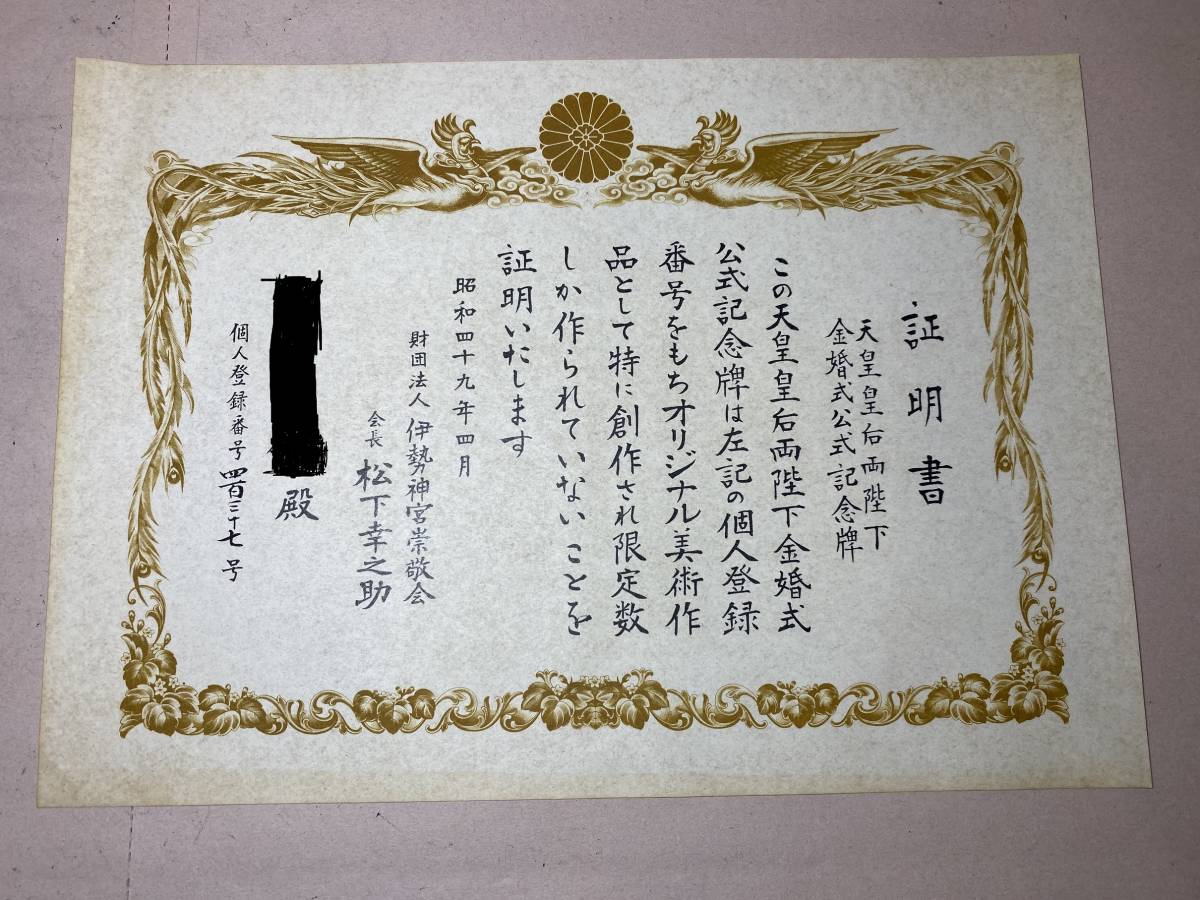 証明書
天皇皇后両陛下
金婚式公式記念牌
この天皇皇后両陛下金婚式
公式記念牌は左記の個人登録
番号をもちオリジナル美術作
品として特に創作され限定数
しか作られていないことを
証明いたします
昭和四十九年四月
財団法人 伊勢神宮崇敬会
会長 松下幸之助
殿
個人登録番号 四百三十七 号